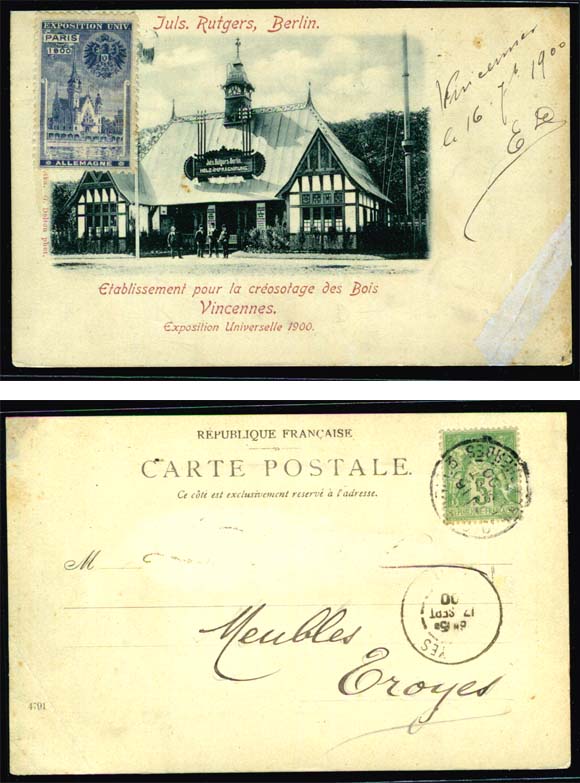 Juls. Rutgers, Berlin.
EXPOSITION UNIV
PARIS
1900
ALLEMAGNE
Juls. Rütgers. Berlin.
HOLZ-IMPRÄGNIRUNG
Vincennes
le 16 7bre 1900
Etablissement pour la créosotage des Bois
Vincennes.
Exposition Universelle 1900.
RÉPUBLIQUE FRANÇAISE
CARTE POSTALE.
Ce côté est exclusivement reservé à l'adresse.
M
17 SEPT
00
YES
Meubles
Troyes
4791